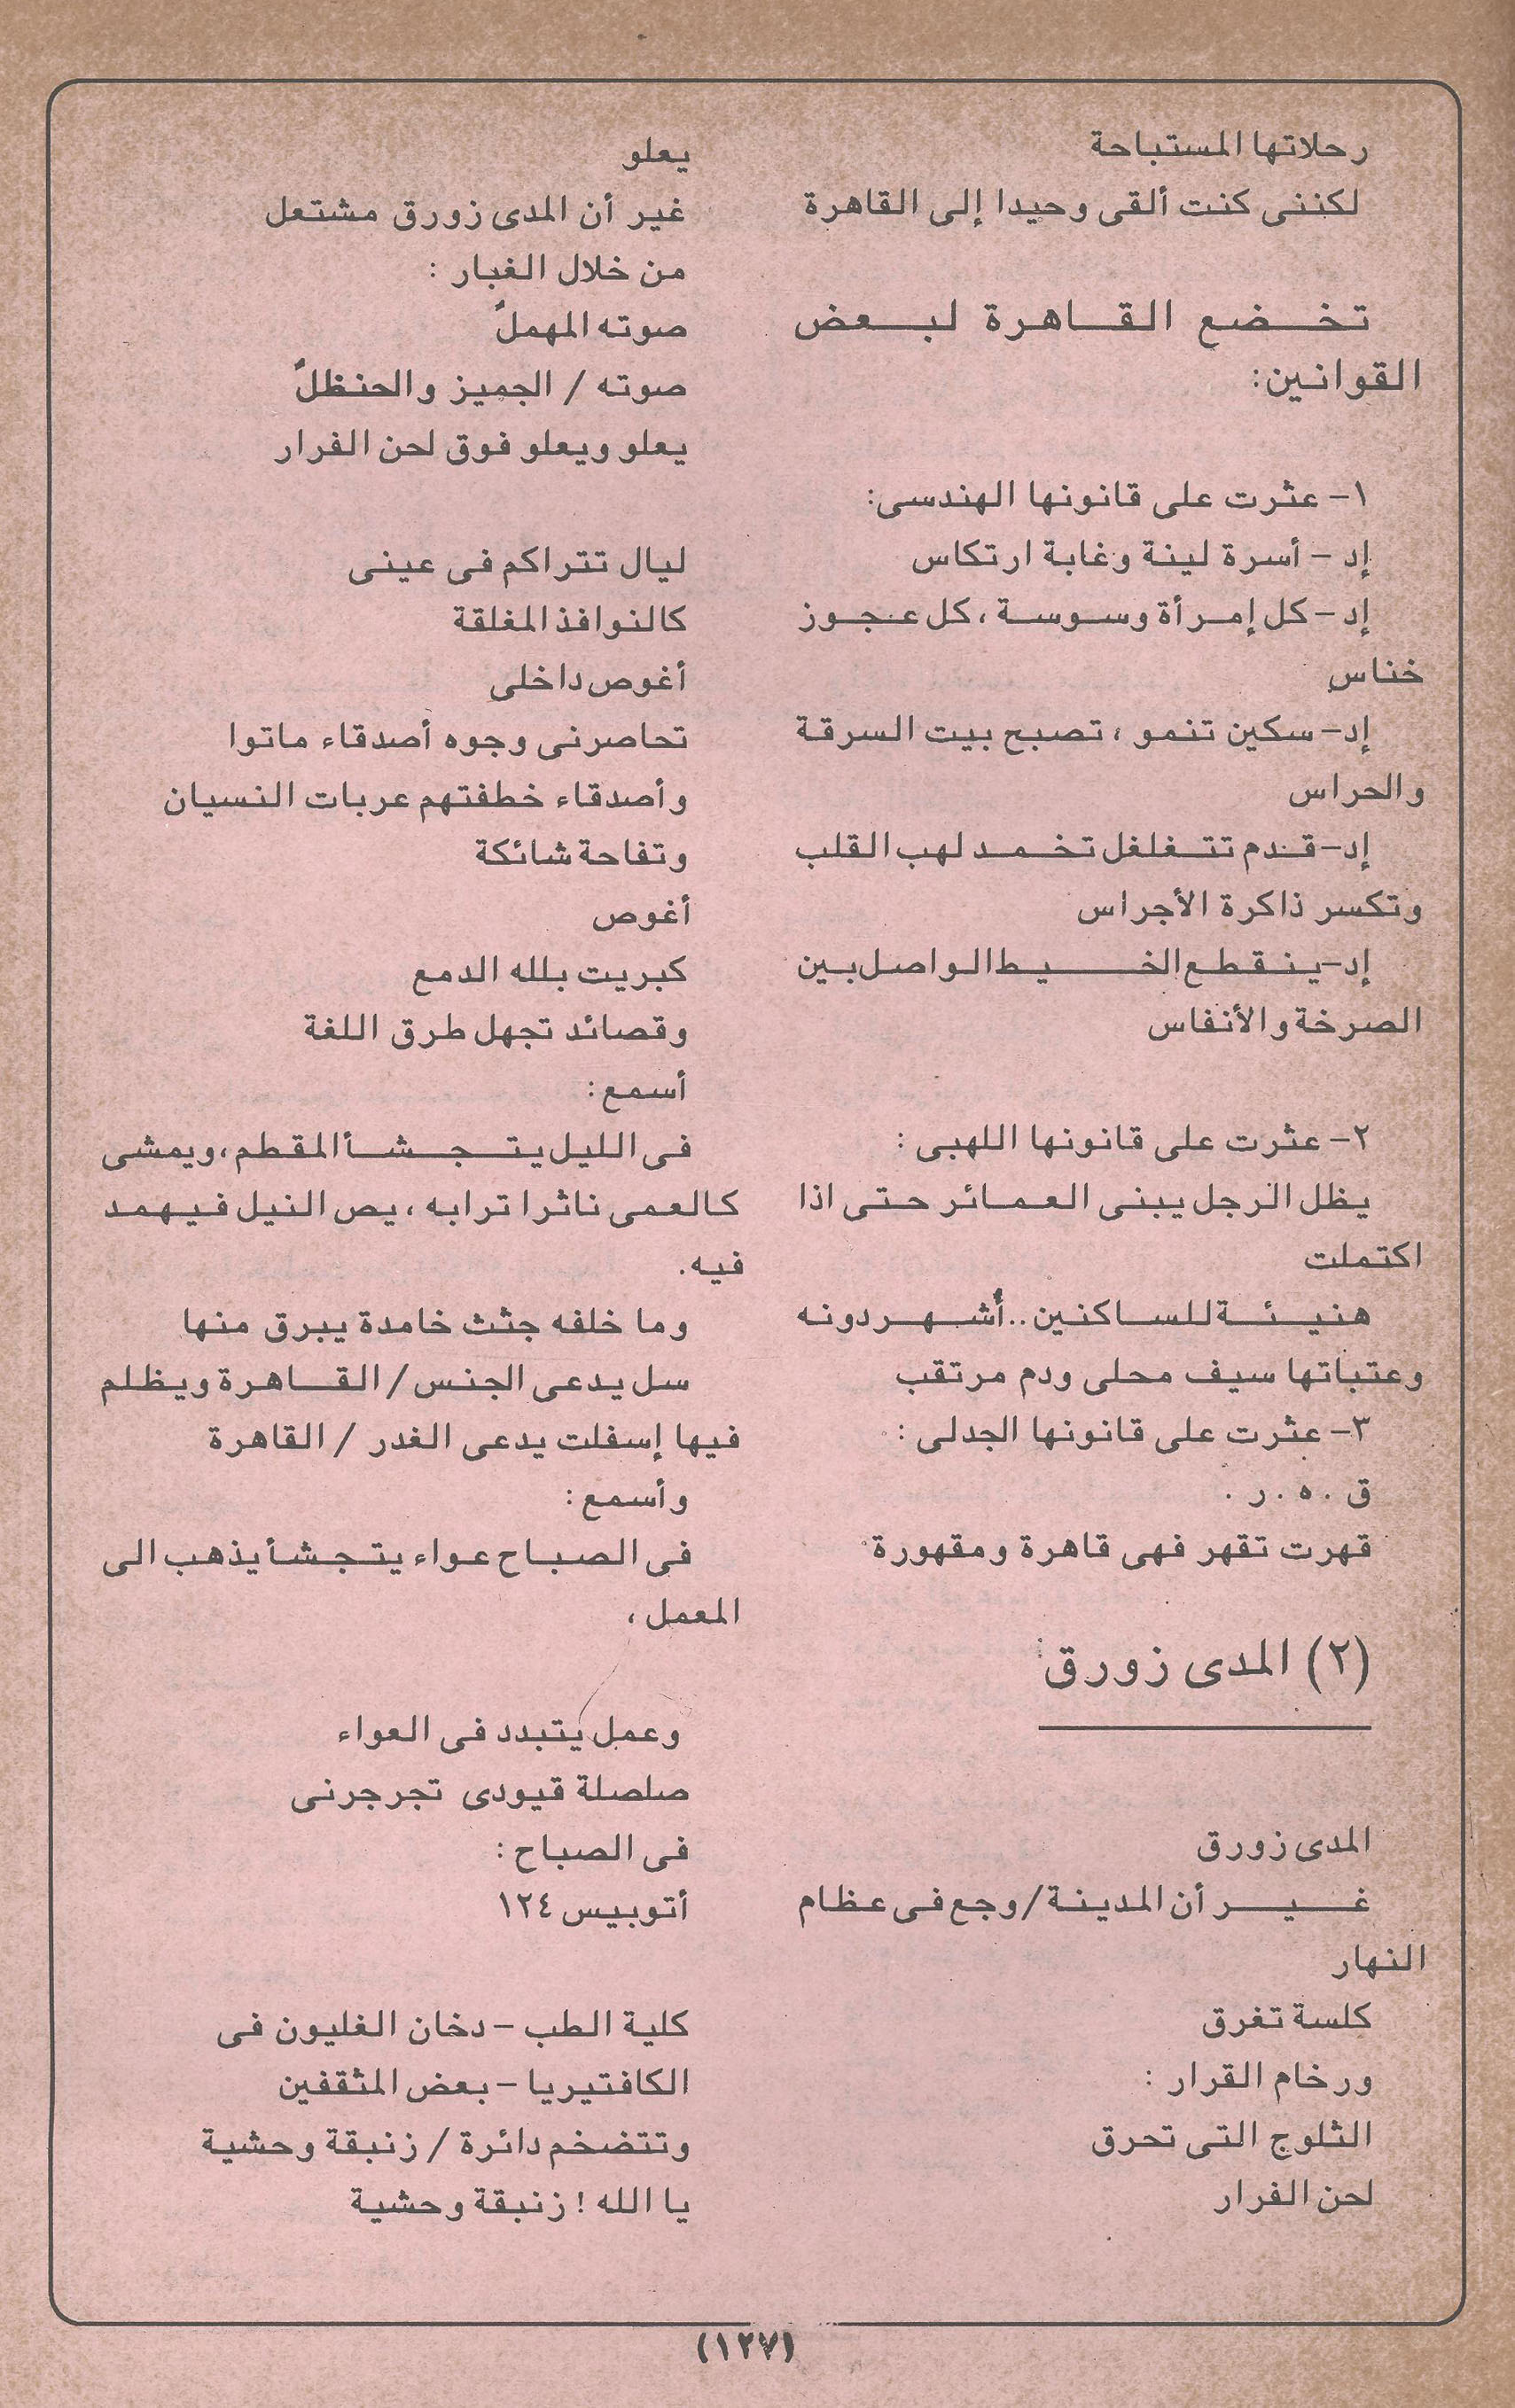 رحلاتها المستباحة
لكننى كنت ألقى وحيدا إلى القاهرة
تخضع القاهرة لبعض
القوانين:
١- عثرت على قانونها الهندسى:
إد - أسرة لينة وغابة ارتكاس
إد - كل إمرأة وسوسة، كل عجوز
خناس
إد- سكين تنمو، تصبح بيت السرقة
والحراس
إد- قدم تتغلغل تخمد لهب القلب
وتكسر ذاكرة الأجراس
إد- ينقطع الخيط الواصل بين
الصرخة والأنفاس
٢- عثرت على قانونها اللهبى :
يظل الرجل يبنى العمائر حتى اذا
اكتملت
هنيئة للساكنين.. أُشهر دونه
وعتباتها سيف محلى ودم مرتقب
٣- عثرت على قانونها الجدلى :
ق . ه . ر .
قهرت تقهر فهى قاهرة ومقهورة
(٢) المدى زورق
المدى زورق
غير أن المدينة / وجع فى عظام
النهار
كلسة تغرق
ورخام القرار :
الثلوج التى تحرق
لحن الفرار
يعلو
غير أن المدى زورق مشتعل
من خلال الغبار :
صوته المهملُ
صوته / الجميز والحنظلُ
يعلو ويعلو فوق لحن الفرار
ليال تتراكم فى عينى
كالنوافذ المغلقة
أغوص داخلى
تحاصرنى وجوه أصدقاء ماتوا
وأصدقاء خطفتهم عربات النسيان
وتفاحة شائكة
أغوص
كبريت بلله الدمع
وقصائد تجهل طرق اللغة
أسمع :
فى الليل يتجشأ المقطم، ويمشى
كالعمى ناثرا ترابه، يص النيل فيهمد
فيه.
وما خلفه جثث خامدة يبرق منها
سل يدعى الجنس / القاهرة ويظلم
فيها إسفلت يدعى الغدر / القاهرة
وأسمع :
فى الصباح عواء يتجشأ يذهب الى
المعمل،
وعمل يتبدد فى العواء
صلصلة قيودى تجرجرنى
فى الصباح :
أتوبيس ١٢٤
كلية الطب - دخان الغليون فى
الكافتيريا - بعض المثقفين
وتتضخم دائرة / زنبقة وحشية
يا الله ! زنبقة وحشية
(١٢٧)